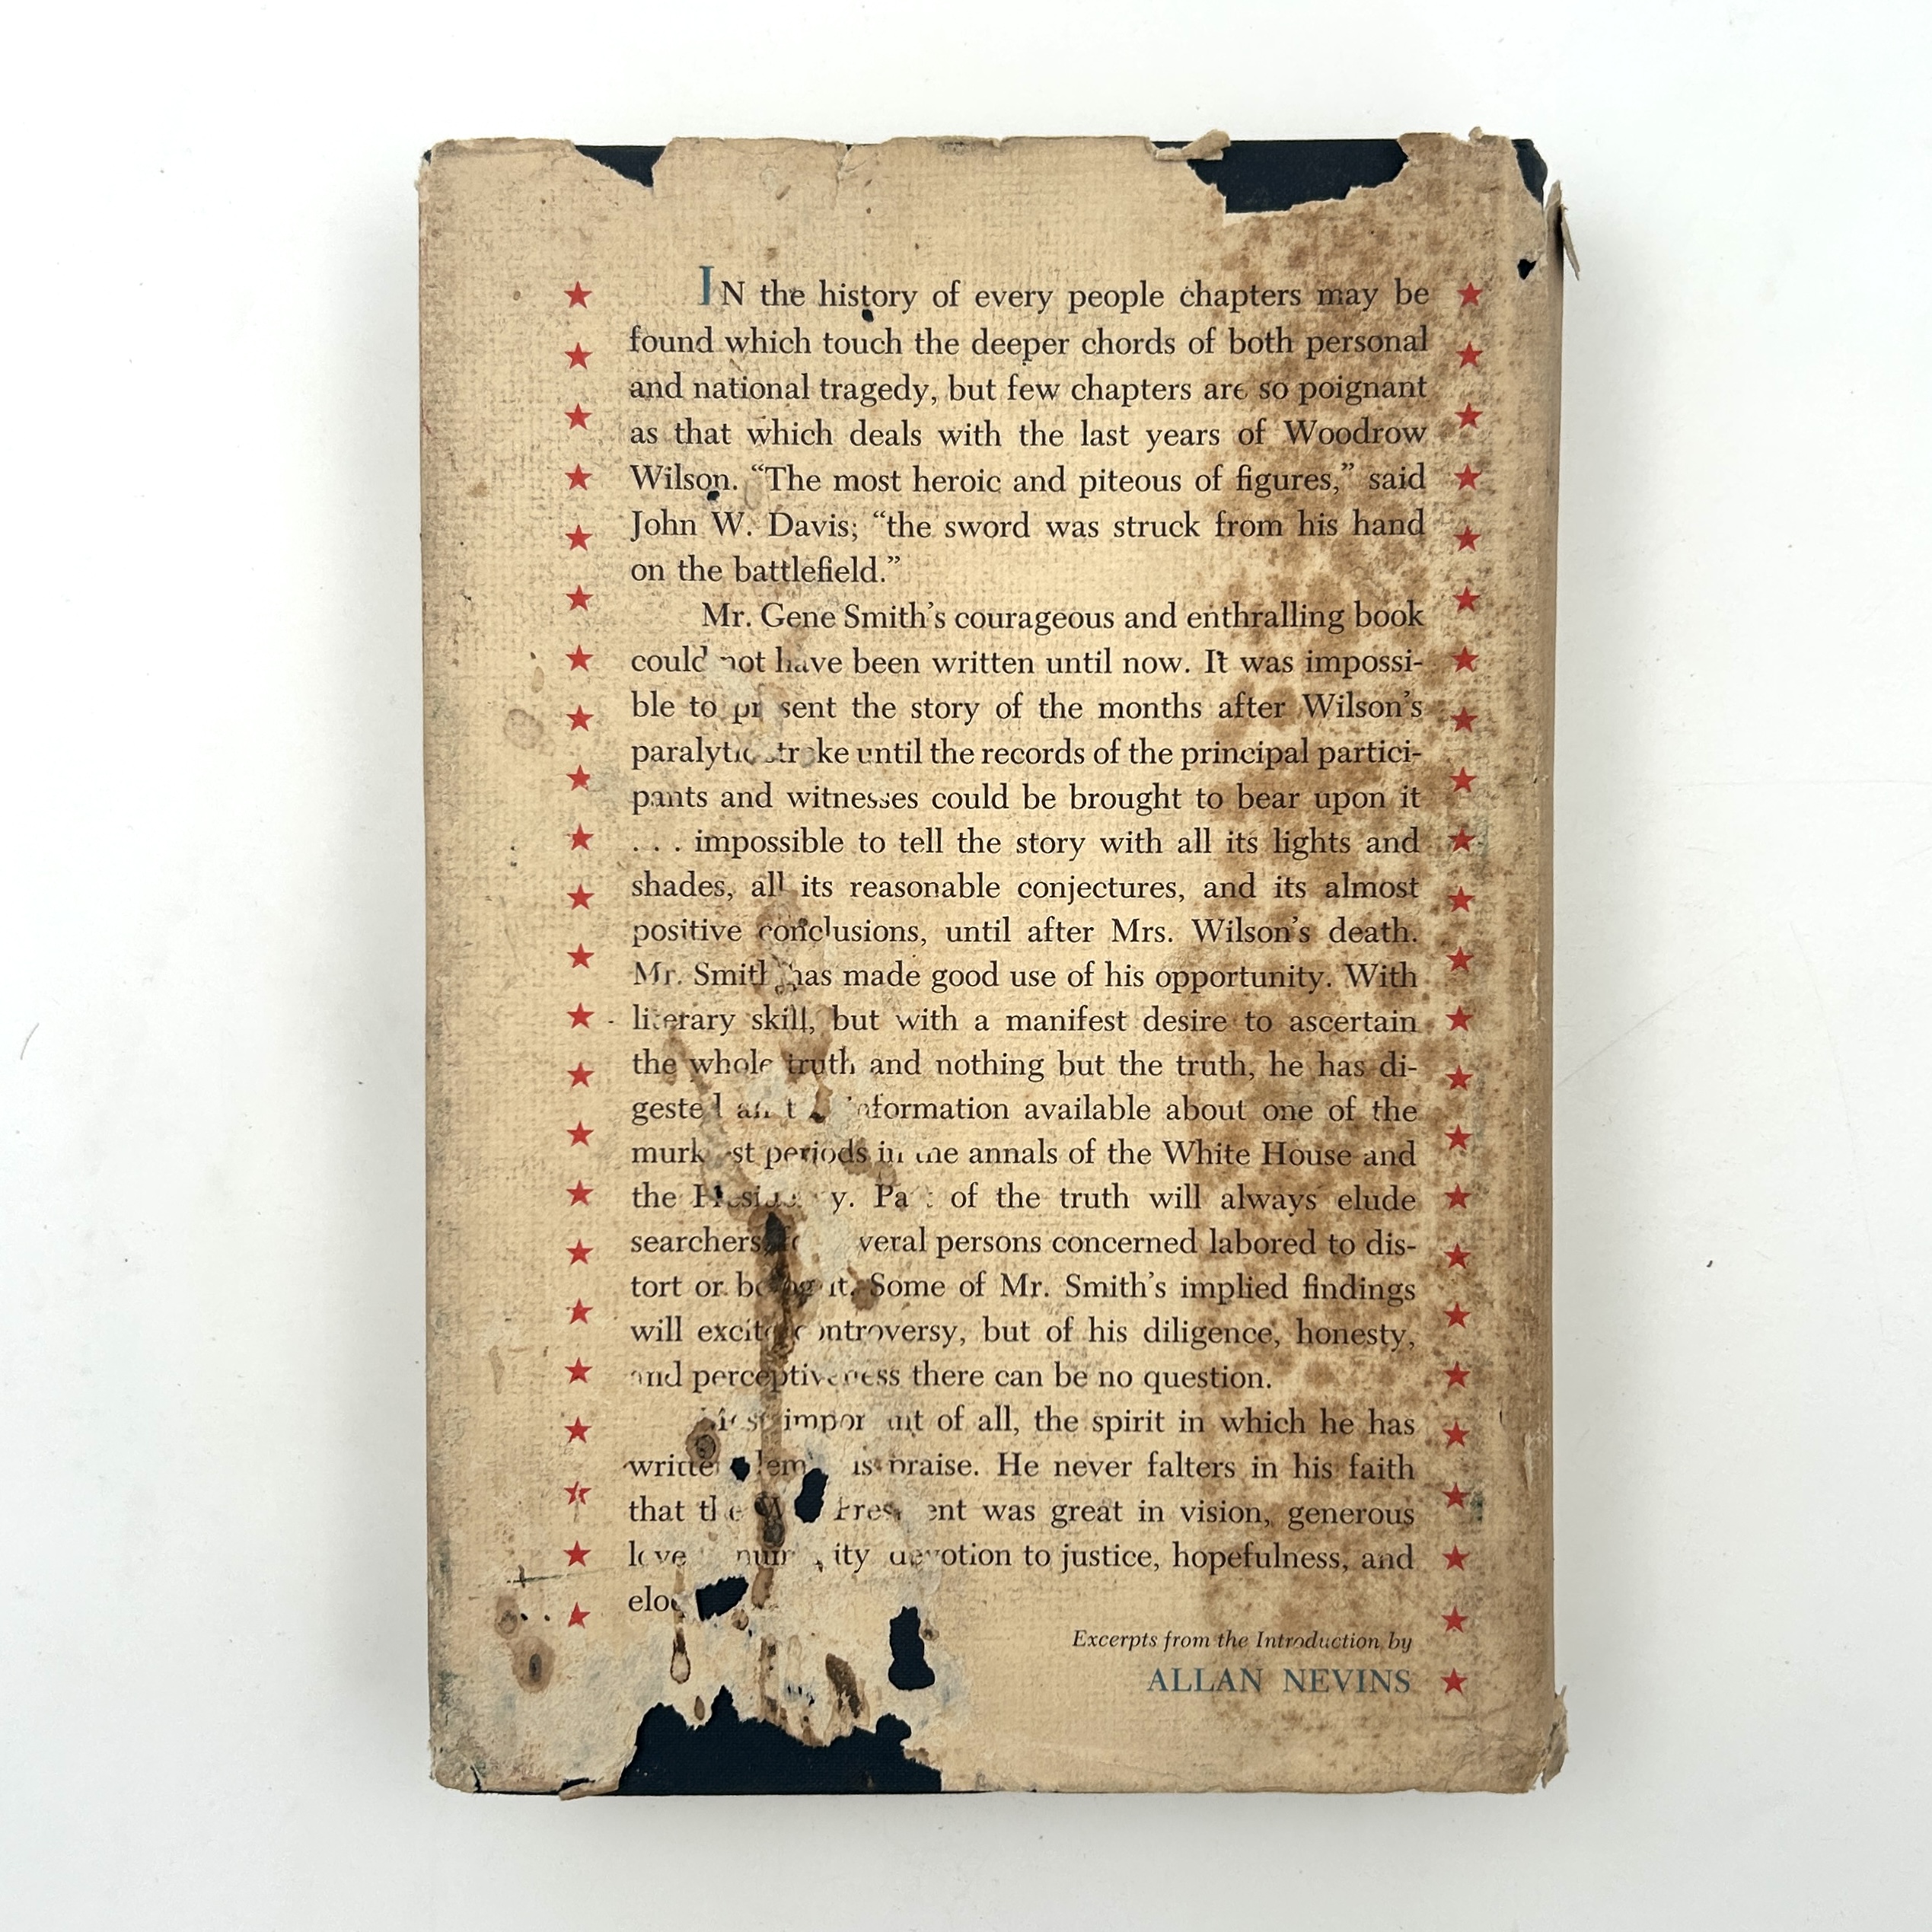 IN the history of every people chapters may be
found which touch the deeper chords of both personal
and national tragedy, but few chapters are so poignant
as that which deals with the last years of Woodrow
Wilson. “The most heroic and piteous of figures,” said
John W. Davis; “the sword was struck from his hand
on the battlefield.”
Mr. Gene Smith’s courageous and enthralling book
could not have been written until now. It was impossi-
ble to present the story of the months after Wilson’s
paralytic stroke until the records of the principal partici-
pants and witnesses could be brought to bear upon it
. . . impossible to tell the story with all its lights and
shades, all its reasonable conjectures, and its almost
positive conclusions, until after Mrs. Wilson’s death.
Mr. Smith has made good use of his opportunity. With
literary skill, but with a manifest desire to ascertain
the whole truth and nothing but the truth, he has di-
gested information available about one of the
murkiest periods in the annals of the White House and
the Presidency. Part of the truth will always elude
searchers, several persons concerned labored to dis-
tort or it. Some of Mr. Smith’s implied findings
will excite controversy, but of his diligence, honesty,
and perceptiveness there can be no question.
important of all, the spirit in which he has
praise. He never falters in his faith
that the President was great in vision, generous
love devotion to justice, hopefulness, and
Excerpts from the Introduction by
ALLAN NEVINS